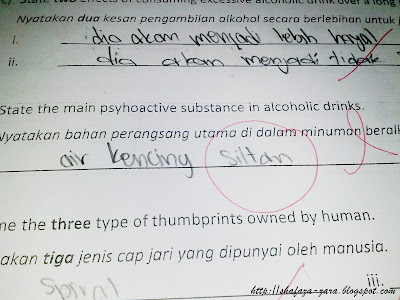 State two effects of consuming excessive alcoholic drink over a long
Nyatakan dua kesan pengambilan alkohol secara berlebihan untuk j
i. dia akan menjadi lebih hayal
ii. dia akan menjadi tidak
State the main psyhoactive substance in alcoholic drinks.
Nyatakan bahan perangsang utama di dalam minuman beralk
air kencing Siltan
me the three type of thumbprints owned by human.
akan tiga jenis cap jari yang dipunyai oleh manusia.
Spiral iii.
http://shafaza-zara.blogspot.com